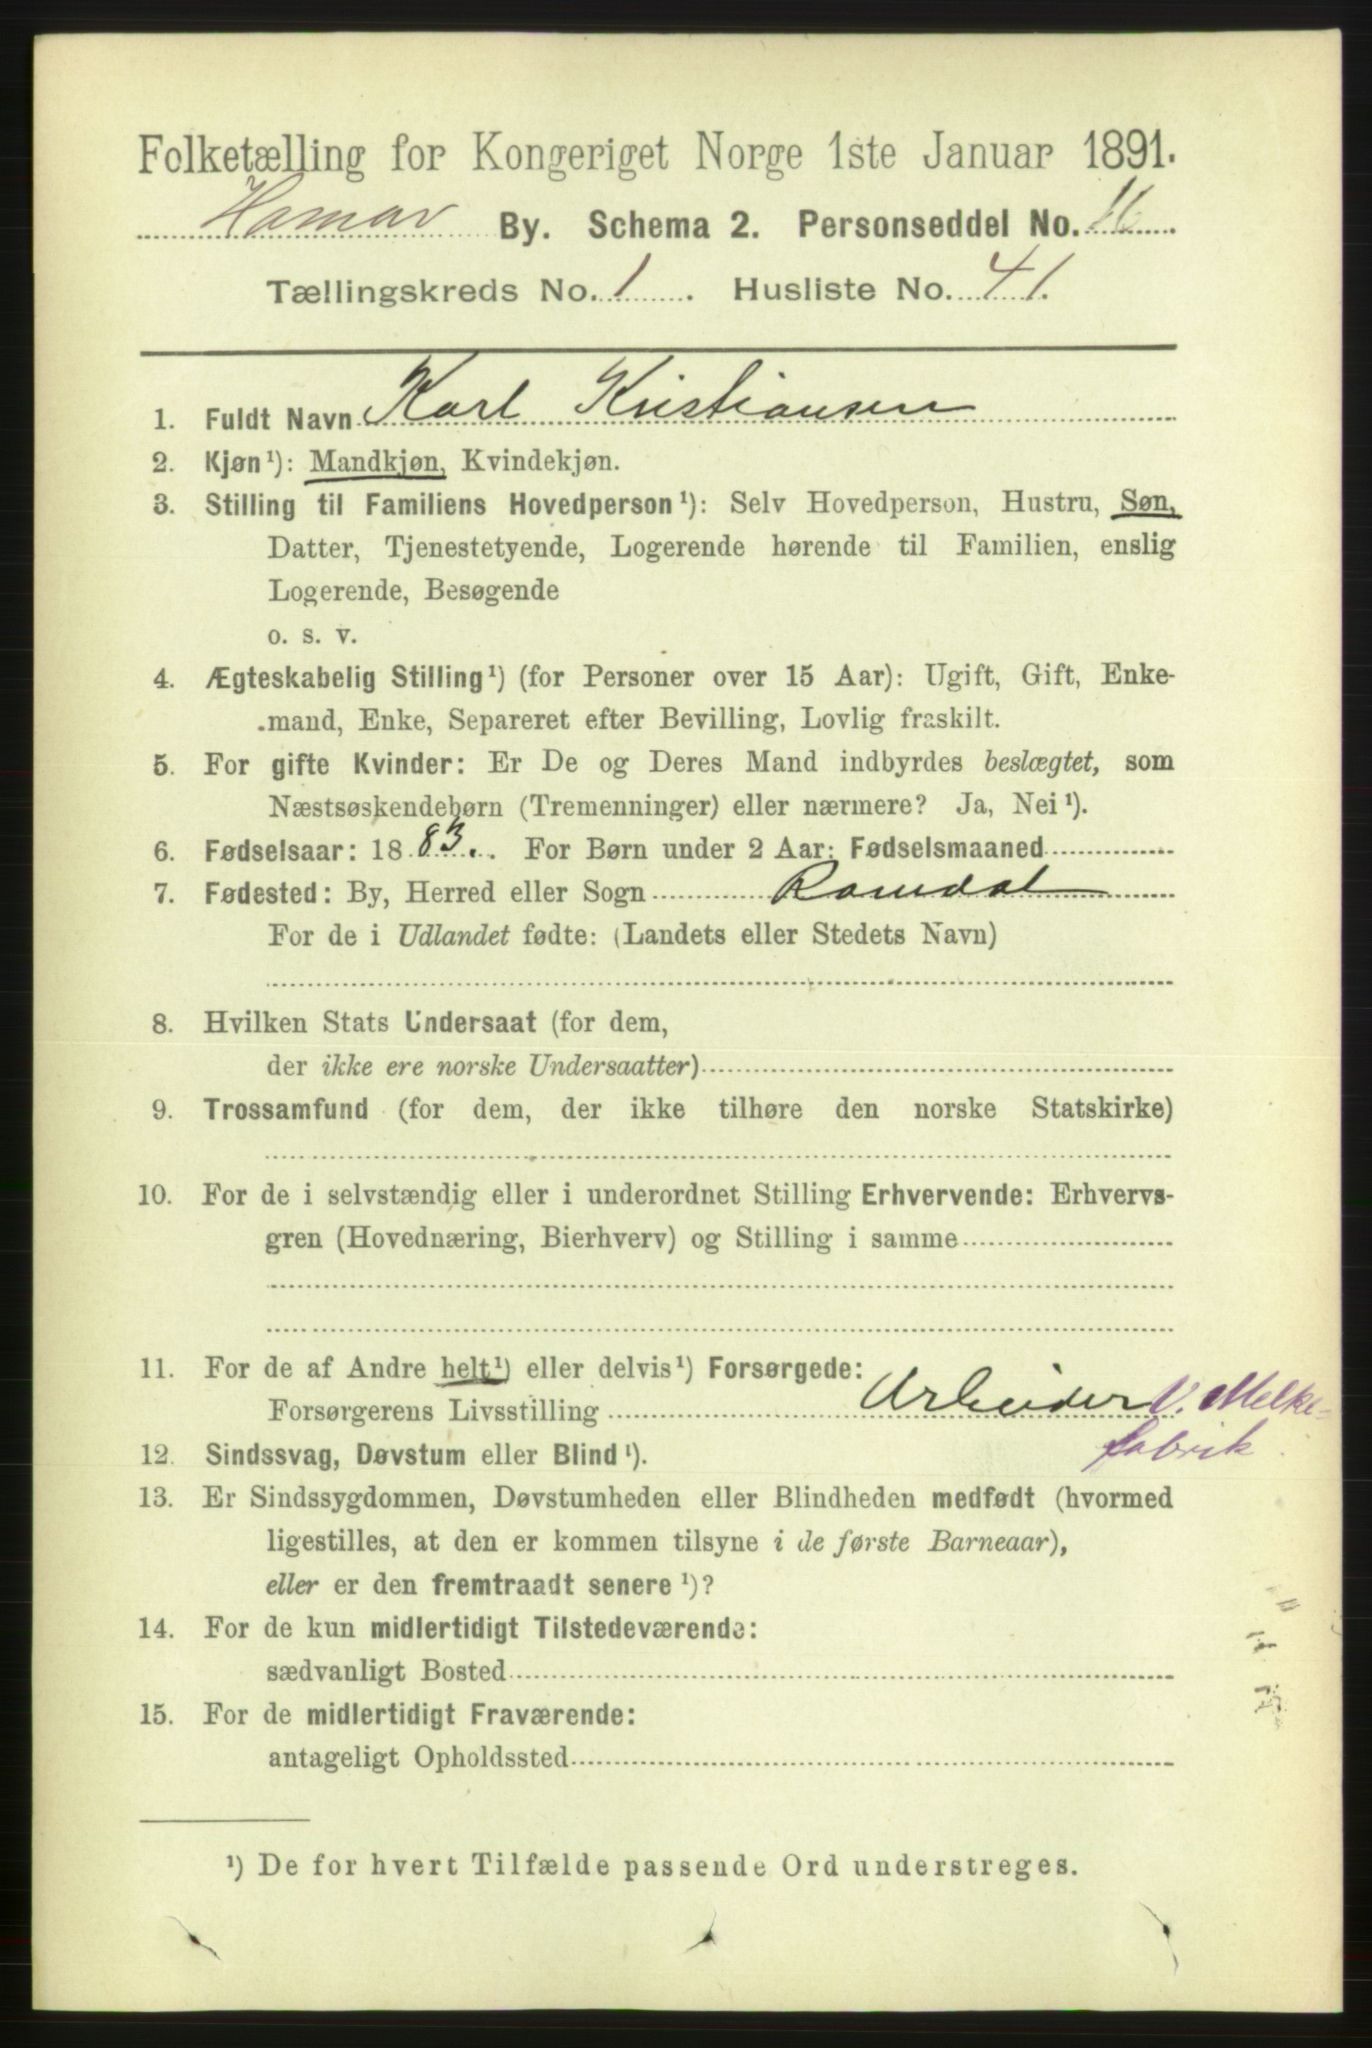 Folketælling for Kongeriget Norge 1ste Januar 1891.
Hamar By. Schema 2. Personseddel No. 16
Tællingskreds No. 1. Husliste No. 41.
1. Fuldt Navn Karl Kristiansen
2. Kjøn¹): Mandkjøn, Kvindekjøn.
3. Stilling til Familiens Hovedperson¹): Selv Hovedperson, Hustru, Søn,
Datter, Tjenestetyende, Logerende hørende til Familien, enslig
Logerende, Besøgende
o. s. v.
4. Ægteskabelig Stilling¹) (for Personer over 15 Aar): Ugift, Gift, Enke-
mand, Enke, Separeret efter Bevilling, Lovlig fraskilt.
5. For gifte Kvinder: Er De og Deres Mand indbyrdes beslægtet, som
Næstsøskendebørn (Tremenninger) eller nærmere? Ja, Nei¹).
6. Fødselsaar: 1883. For Børn under 2 Aar: Fødselsmaaned
7. Fødested: By, Herred eller Sogn Romdal
For de i Udlandet fødte: (Landets eller Stedets Navn)
8. Hvilken Stats Undersaat (for dem,
der ikke ere norske Undersaatter)
9. Trossamfund (for dem, der ikke tilhøre den norske Statskirke)
10. For de i selvstændig eller i underordnet Stilling Erhvervende: Erhvervs-
gren (Hovednæring, Bierhverv) og Stilling i samme
11. For de af Andre helt¹) eller delvis¹) Forsørgede:
Forsørgerens Livsstilling Arbeider v. Melke-
fabrik
12. Sindssvag, Døvstum eller Blind¹).
13. Er Sindssygdommen, Døvstumheden eller Blindheden medfødt (hvormed
ligestilles, at den er kommen tilsyne i de første Barneaar),
eller er den fremtraadt senere¹)?
14. For de kun midlertidigt Tilstedeværende:
sædvanligt Bosted
15. For de midlertidigt Fraværende:
antageligt Opholdssted
¹) De for hvert Tilfælde passende Ord understreges.